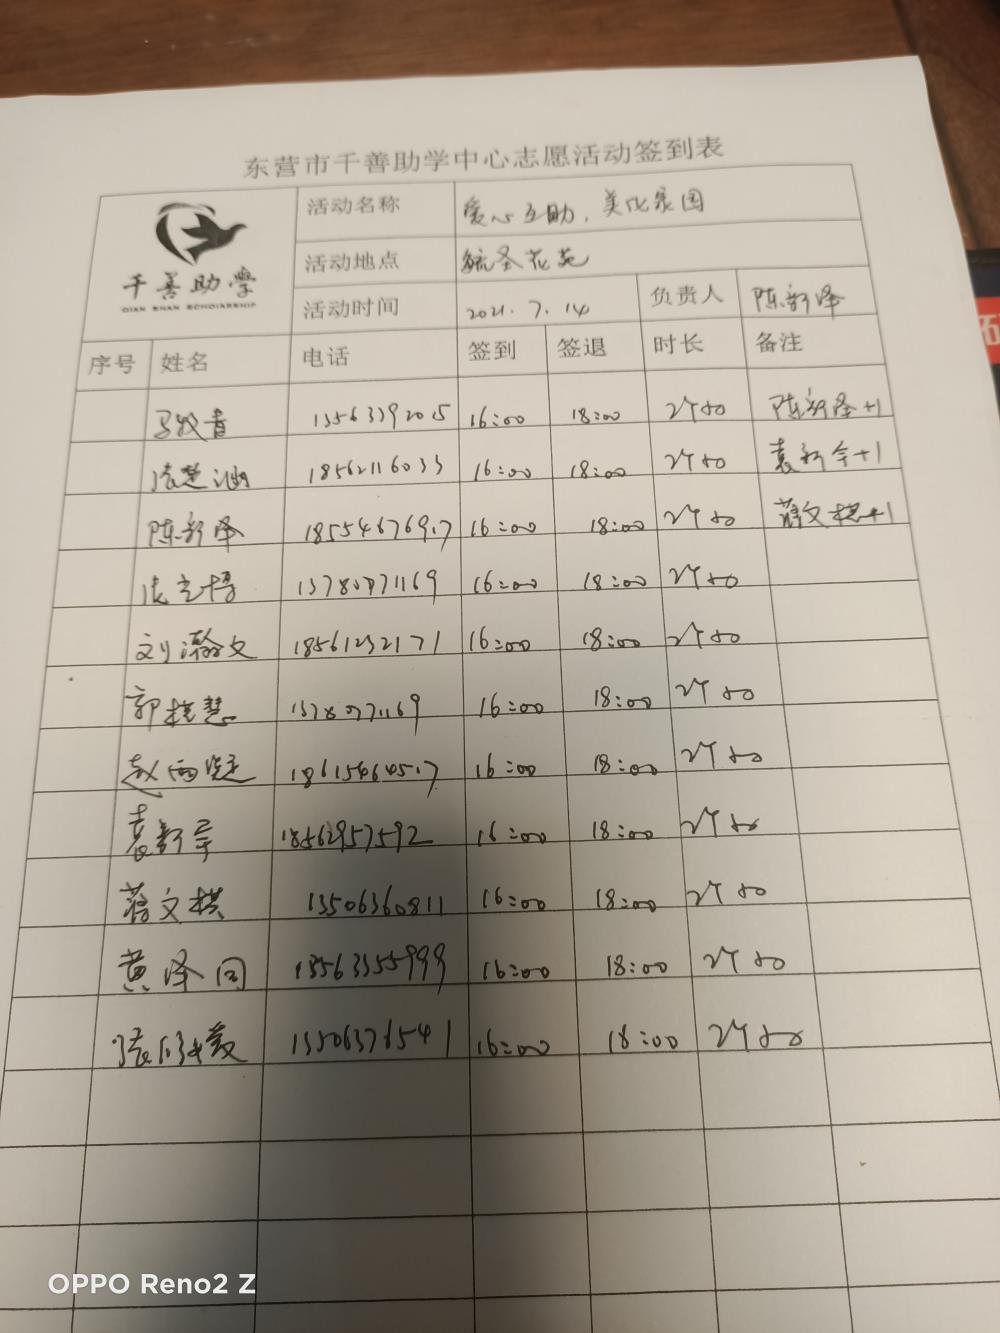 东营市千善助学中心志愿活动签到表
千善助学
QIAN SHAN SCHOLARSHIP
活动名称 爱心互助,美化家园
活动地点 毓圣花苑
活动时间 2021.7.14 负责人 陈新泽
序号 姓名 电话 签到 签退 时长 备注
13563392015 16:00 18:00 2小时 陈新泽+1
张楚涵 18562116033 16:00 18:00 2小时 袁新宇+1
陈新泽 18554676917 16:00 18:00 2小时 蒋文棋+1
13780771169 16:00 18:00 2小时
刘瀚文 18561232171 16:00 18:00 2小时
郭 慧 13780771169 16:00 18:00 2小时
赵雨 16:00 18:00 2小时
袁新宇 18562957592 16:00 18:00 2小时
蒋文棋 13506360811 16:00 18:00 2小时
黄泽同 13563355999 16:00 18:00 2小时
张 13506376541 16:00 18:00 2小时
OPPO Reno2 Z